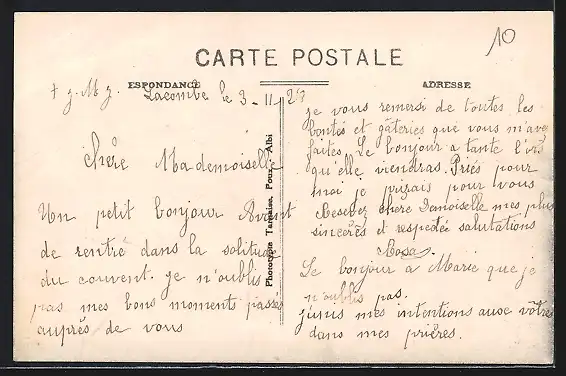 10
CARTE POSTALE
ESPONDANCE
ADRESSE
+ J. M. J.
Lacombe le 3-11-27
Chère Mademoiselle
Un petit bonjour Avant
de rentré dans la solitude
du couvent. je n'oublis
pas mes bons moments passés
auprès de vous
je vous remersi de toutes les
bontés et gâteries que vous m'avez
faites. Le bonjour a tante
qu'elle viendras. Priés pour
moi je prirais pour vous
Resevez chère Demoiselle mes plus
sincerès et respectée salutations
Rosa
Le bonjour a Marie que je
n'oublis pas.
j'unis mes intentions auxe vôtres
dans mes prières.
Phototypie Tarnaise, Poux, Albi